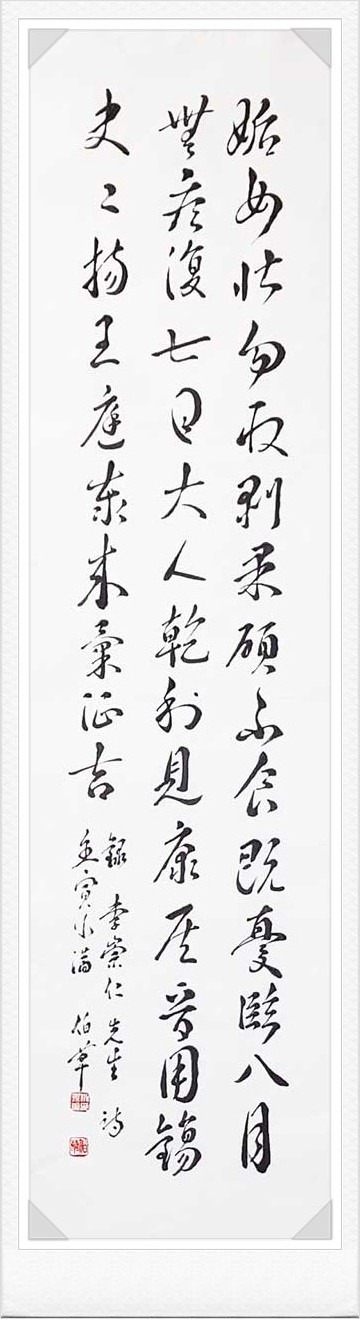 姤女壯勿取剝果碩不食既憂臨八月
無疾復七日大人乾利見康侯晉用錫
夬〻揚王庭泰來彙征吉
錄 李崇仁 先生 詩
壬寅小滿